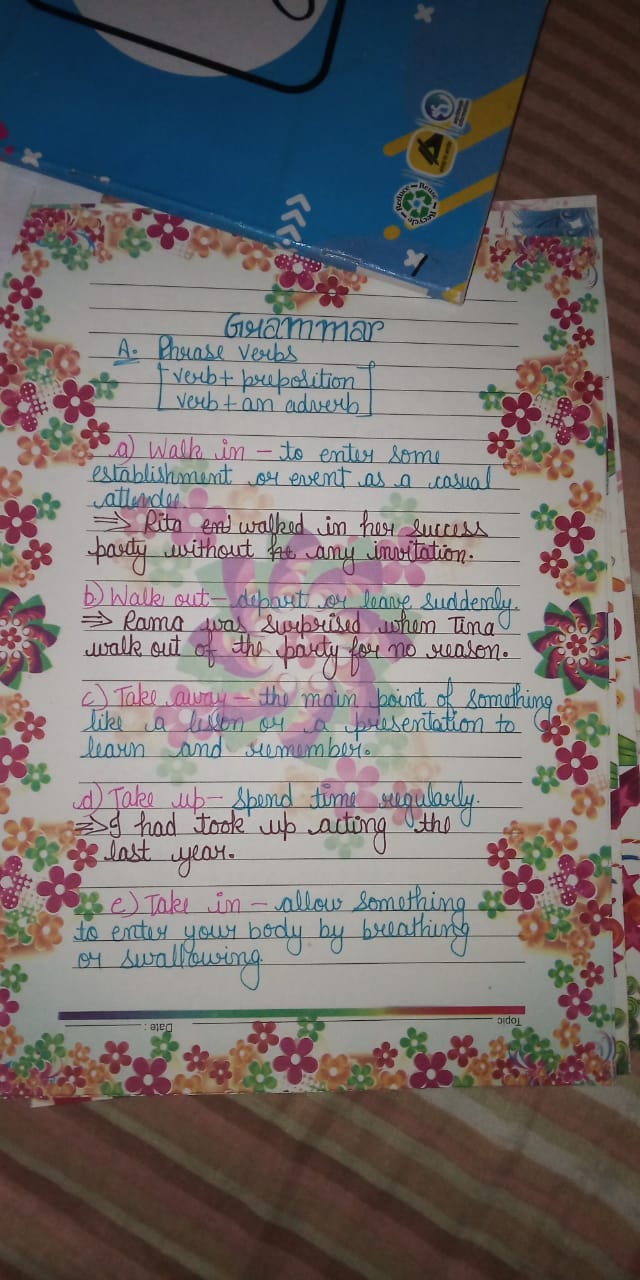 Grammar
A. Phrase verbs
verb + preposition
verb + an adverb
a) Walk in - to enter some
establishment or event as a casual
attendee
⇒ Rita walked in her success
party without any invitation.
b) Walk out - depart or leave suddenly.
⇒ Rama was surprised when Tina
walk out of the party for no reason.
c) Take away - the main point of something
like a lesson or a presentation to
learn and remember.
d) Take up - spend time regularly.
⇒ I had took up acting the
last year.
e) Take in - allow something
to enter your body by breathing
or swallowing.
Topic
Date :
Reduce Reuse Recycle